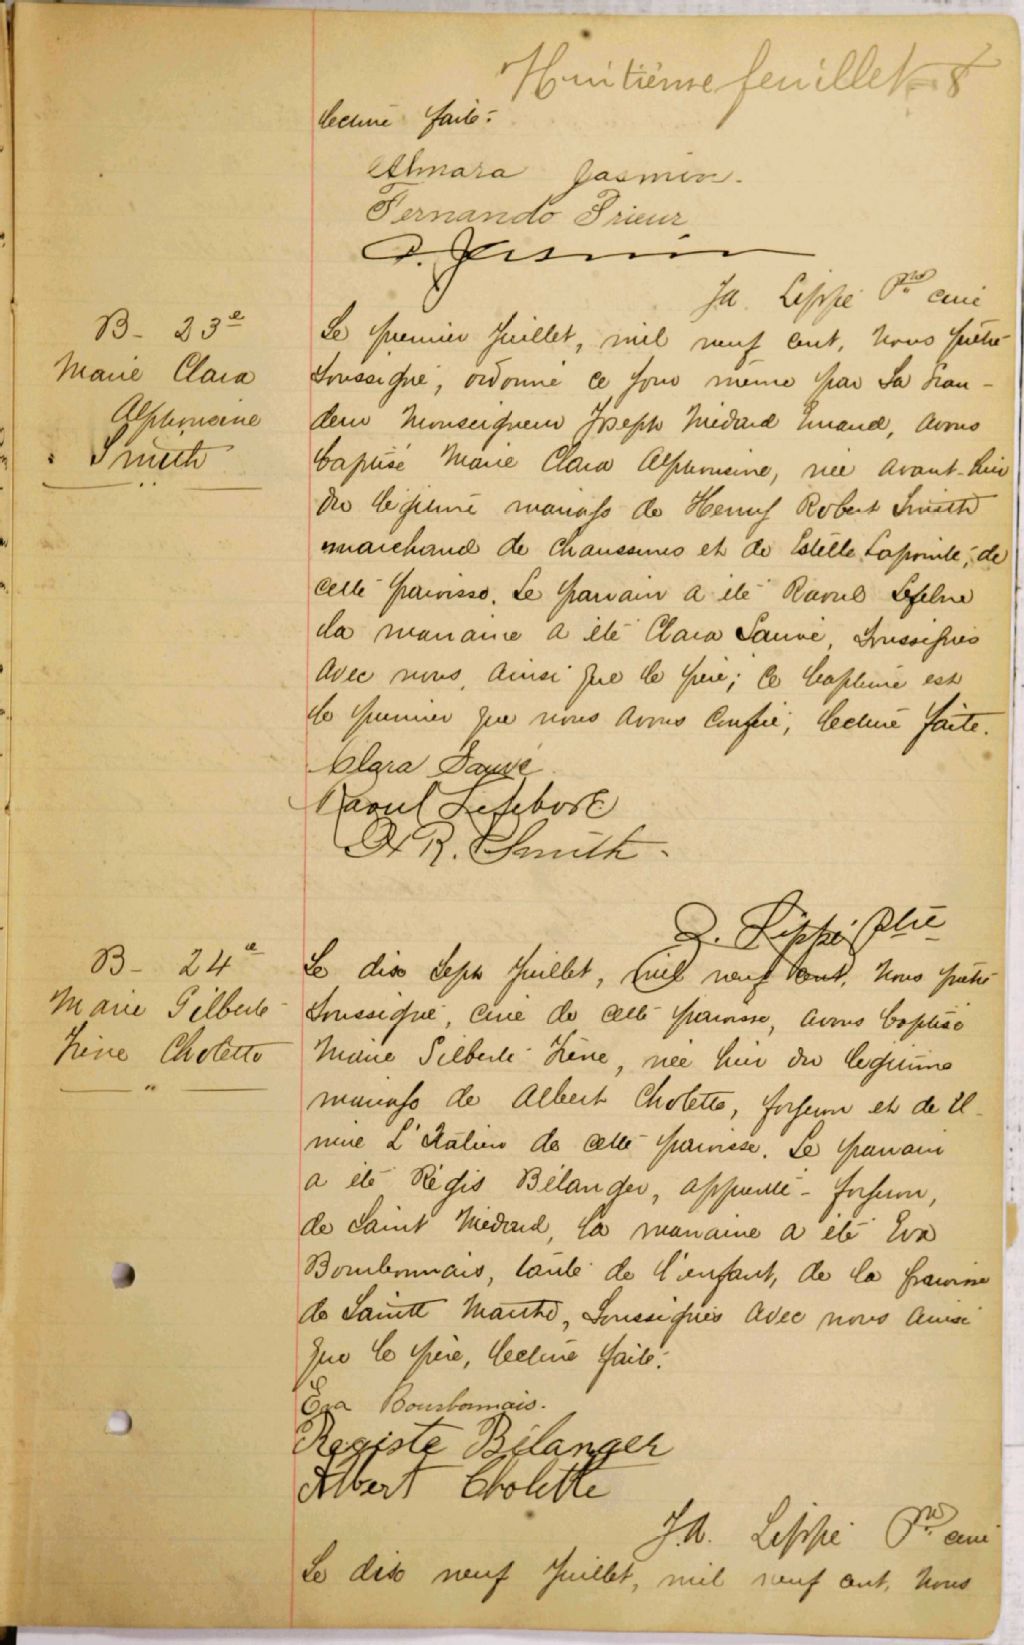 Huitième feuillet - 8
lecture faite.
Almara Jasmin.
Fernando Prieur
J. Jasmin
Ja. Lippé Ptre curé
B - 23e
Marie Clara
Alphonsine
Smith
Le premier Juillet, mil neuf cent, nous prêtre
soussigné, ordonné ce jour même par Sa Gran-
deur Monseigneur Joseph Médard Emard, avons
baptisé Marie Clara Alphonsine, née avant-hier
du légitime mariage de Henry Robert Smith
marchand de chaussures et de Estelle Lapointe, de
cette paroisse. Le parrain a été Raoul Lefebvre
la marraine a été Clara Sauvé, soussignés
avec nous, ainsi que le père; ce baptême est
le premier que nous avons conféré; lecture faite.
Clara Sauvé
Raoul Lefebvre
H R. Smith.
Lippé ptre
B - 24e
Marie Gilberte
Irène Cholette
Le dix sept Juillet, mil neuf cent, nous prêtre
soussigné, curé de cette paroisse, avons baptisé
Marie Gilberte Irène, née hier du légitime
mariage de Albert Cholette, forgeron et de
de cette paroisse. Le parrain
a été Régis Bélanger, apprenti-forgeron,
de Saint Médard, la marraine a été Eva
Bourbonnais, tante de l'enfant, de la paroisse
de Sainte Marthe, soussignés avec nous ainsi
que le père, lecture faite.
Eva Bourbonnais.
Registe Bélanger
Albert Cholette
J.A. Lippé Ptre curé
Le dix neuf Juillet, mil neuf cent, nous